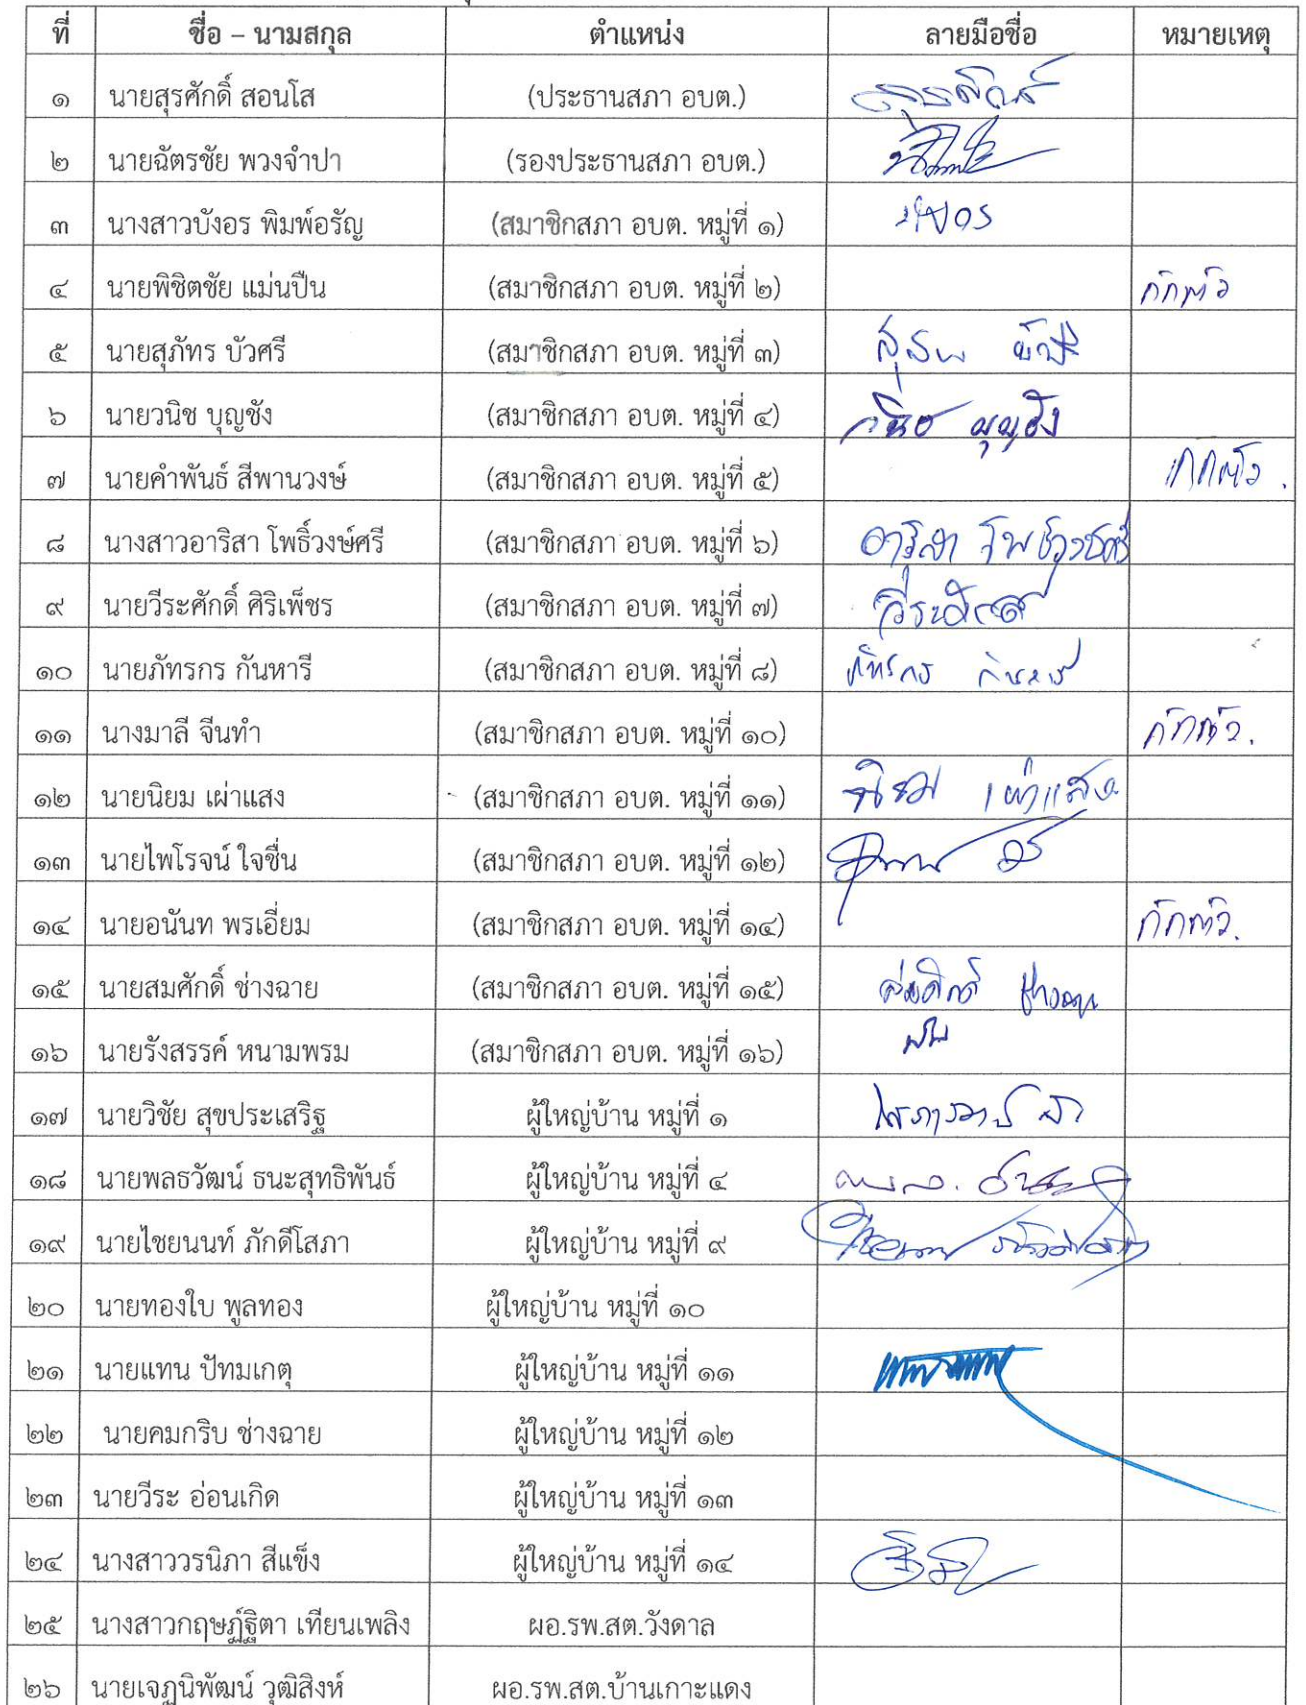 ที่ ชื่อ – นามสกุล ตำแหน่ง ลายมือชื่อ หมายเหตุ
๑ นายสุรศักดิ์ สอนโส (ประธานสภา อบต.)
๒ นายฉัตรชัย พวงจำปา (รองประธานสภา อบต.)
๓ นางสาวบังอร พิมพ์อรัญ (สมาชิกสภา อบต. หมู่ที่ ๑) บังอร
๔ นายพิชิตชัย แม่นปืน (สมาชิกสภา อบต. หมู่ที่ ๒) กักตัว
๕ นายสุภัทร บัวศรี (สมาชิกสภา อบต. หมู่ที่ ๓)
๖ นายวนิช บุญชัง (สมาชิกสภา อบต. หมู่ที่ ๔) วนิช บุญชัง
๗ นายคำพันธ์ สีพานวงษ์ (สมาชิกสภา อบต. หมู่ที่ ๕) กักตัว.
๘ นางสาวอาริสา โพธิ์วงษ์ศรี (สมาชิกสภา อบต. หมู่ที่ ๖) อาริสา โพธิ์วงษ์ศรี
๙ นายวีระศักดิ์ ศิริเพ็ชร (สมาชิกสภา อบต. หมู่ที่ ๗) วีระศักดิ์
๑๐ นายภัทรกร กันหารี (สมาชิกสภา อบต. หมู่ที่ ๘) ภัทรกร กันหารี
๑๑ นางมาลี จีนทำ (สมาชิกสภา อบต. หมู่ที่ ๑๐) กักตัว.
๑๒ นายนิยม เผ่าแสง (สมาชิกสภา อบต. หมู่ที่ ๑๑) นิยม เผ่าแสง
๑๓ นายไพโรจน์ ใจชื่น (สมาชิกสภา อบต. หมู่ที่ ๑๒)
๑๔ นายอนันท พรเอี่ยม (สมาชิกสภา อบต. หมู่ที่ ๑๔) กักตัว.
๑๕ นายสมศักดิ์ ช่างฉาย (สมาชิกสภา อบต. หมู่ที่ ๑๕) สมศักดิ์ ช่างฉาย
๑๖ นายรังสรรค์ หนามพรม (สมาชิกสภา อบต. หมู่ที่ ๑๖)
๑๗ นายวิชัย สุขประเสริฐ ผู้ใหญ่บ้าน หมู่ที่ ๑
๑๘ นายพลธวัฒน์ ธนะสุทธิพันธ์ ผู้ใหญ่บ้าน หมู่ที่ ๔
๑๙ นายไชยนนท์ ภักดีโสภา ผู้ใหญ่บ้าน หมู่ที่ ๙
๒๐ นายทองใบ พูลทอง ผู้ใหญ่บ้าน หมู่ที่ ๑๐
๒๑ นายแทน ปัทมเกตุ ผู้ใหญ่บ้าน หมู่ที่ ๑๑
๒๒ นายคมกริบ ช่างฉาย ผู้ใหญ่บ้าน หมู่ที่ ๑๒
๒๓ นายวีระ อ่อนเกิด ผู้ใหญ่บ้าน หมู่ที่ ๑๓
๒๔ นางสาววรนิภา สีแข็ง ผู้ใหญ่บ้าน หมู่ที่ ๑๔
๒๕ นางสาวกฤษฎ์ฐิตา เทียนเพลิง ผอ.รพ.สต.วังดาล
๒๖ นายเจฎนิพัฒน์ วุฒิสิงห์ ผอ.รพ.สต.บ้านเกาะแดง